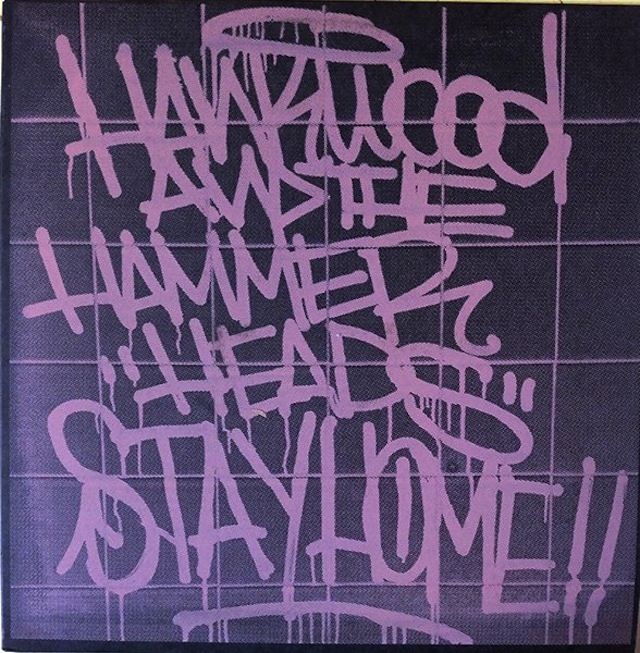 HANKWOOd
AND THE
HAMMER
"HEADS"
STAY HOME!!